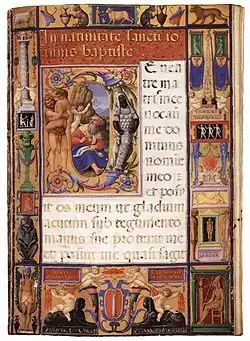 In natiuitate sancti io
annis baptiste.
De uen
tre ma
tris mee
uocauit
me do
minus
nomine
meo:
et posu
it os meum ut gladium
acutum sub tegumento
manus sue protexit me
et posuit me quasi sagit